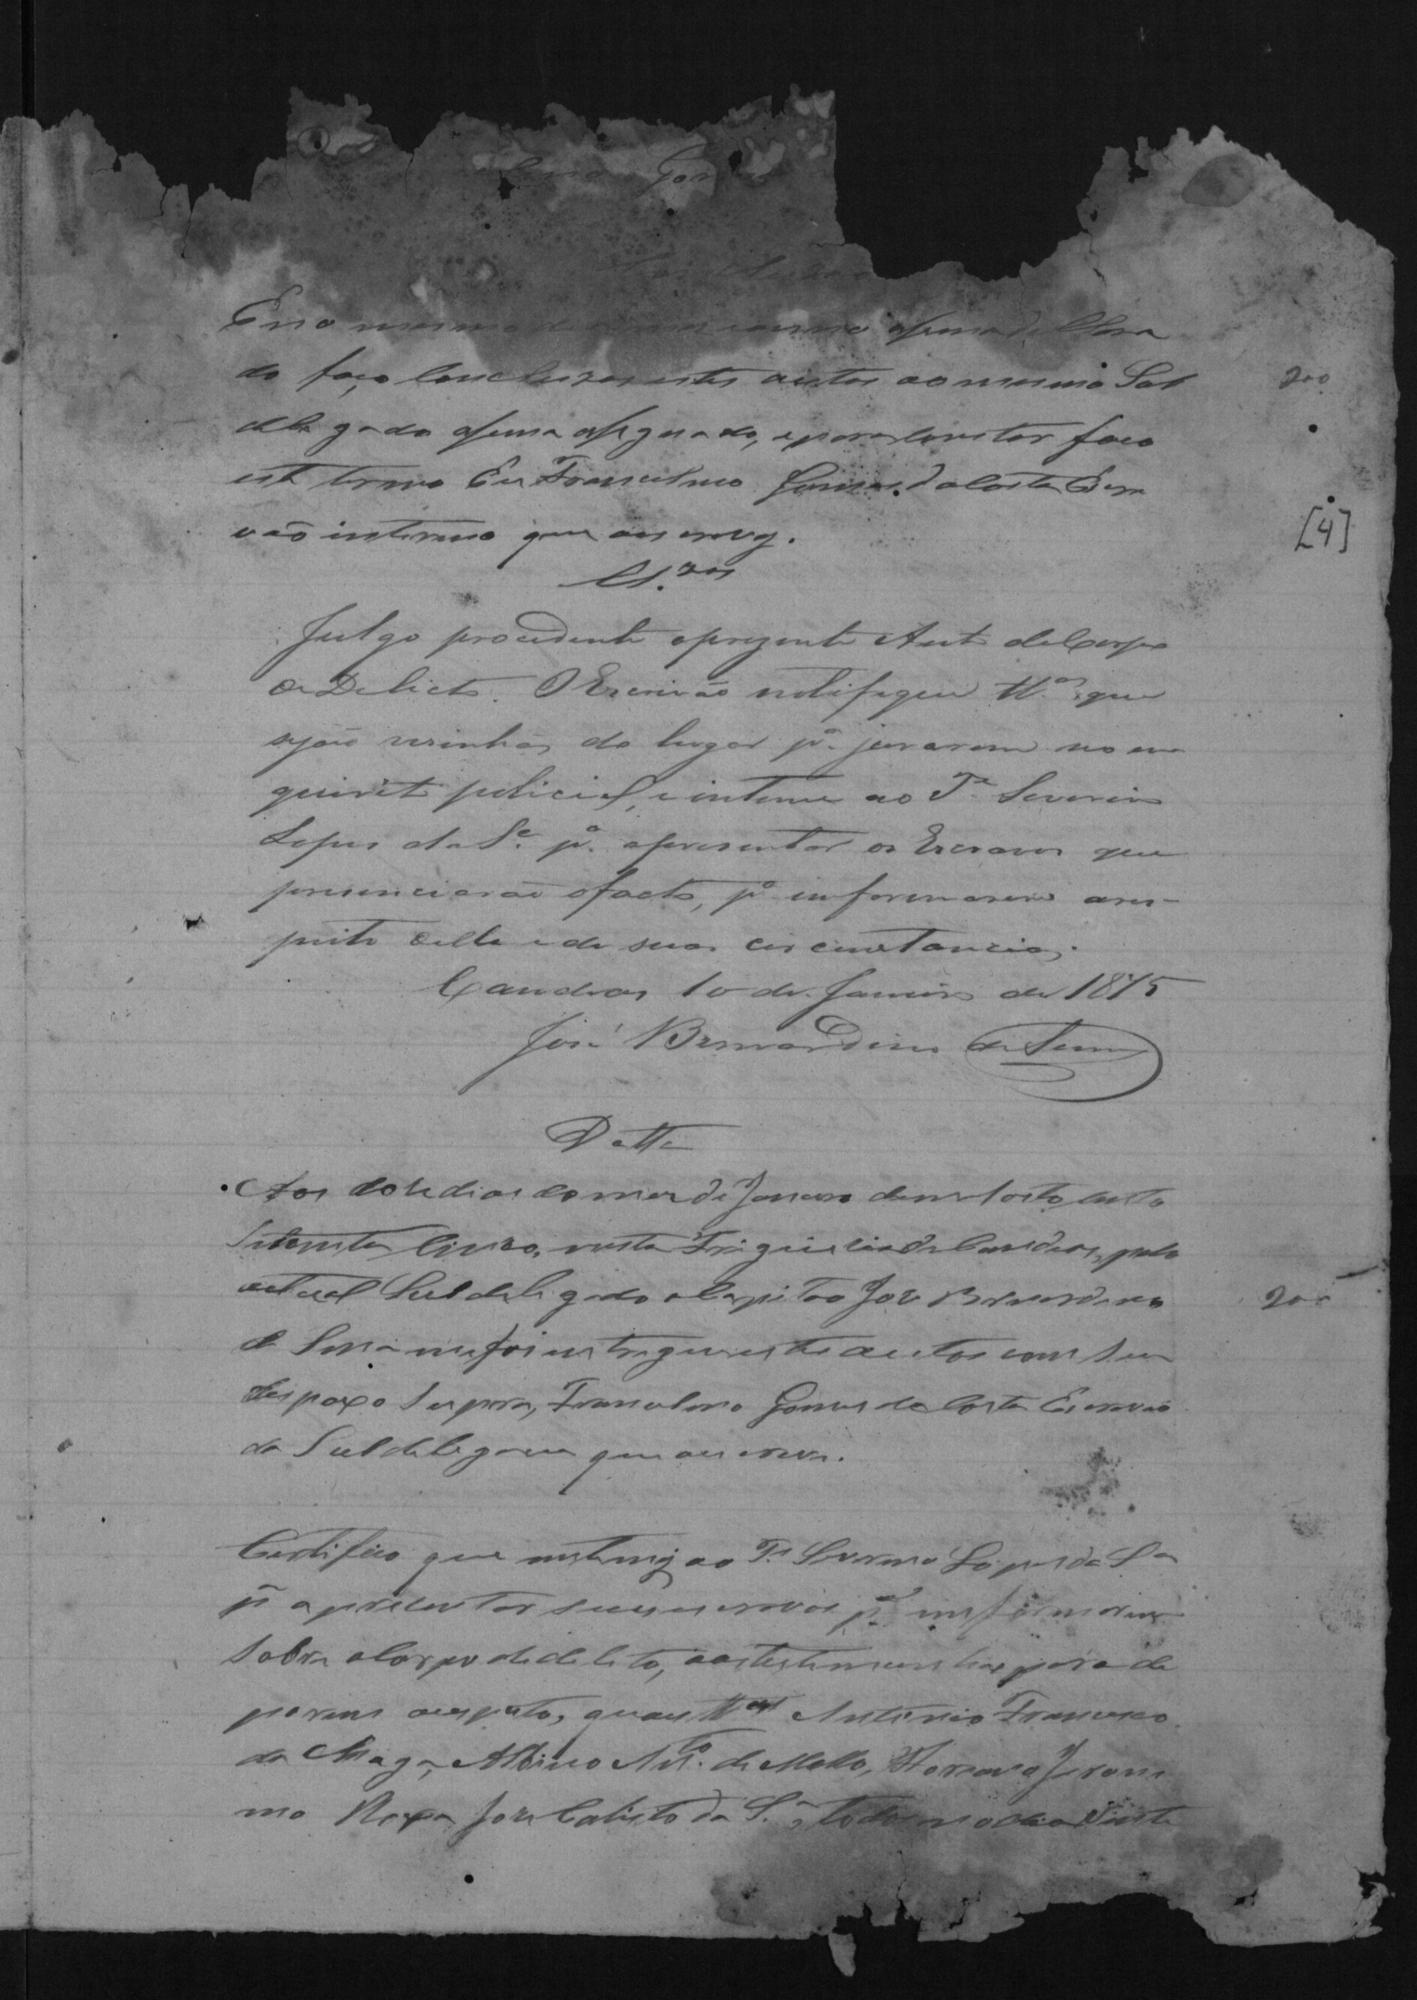 E no mesmo dia
do faço concluzos estes autos ao mesmo Sub
delegado asima asignado, e para constar faço
este termo Eu Francelino Gomes da Costa Escri
vão interino que ao escrevy.
Cl.zos
Julgo procedente o prezente Auto de Corpo
de Delicto. O Escrivão notifique tt.as que
sejão vesinhas do lugar p.a jurarem no in
querito policial, e intime ao T.e Severino
Lopes da S.a p.a apresentar os Escravos que
presenciarão o facto, p.a informarem a res-
peito delle e de suas circunstancias.
Candeas 10 de Janeiro de 1875
José Bernardino de Sena
Datta
Aos dose dias do mez de Janeiro de mil oito cento
Setenta e Cinco, nesta Freguezia de Candeas, pelo
actual Subdelegado o Capitão José Bernardino
de Sena me foi entregue estes autos com seu
despaxo supra, Francelino Gomes da Costa Escrivão
da Subdelegacia que ao escrevi.
Certifico que intimei ao T.e Severino Lopes da S.a
p.a apresentar seus escravos p.a imformarem
sobre o Corpo de delito, e as testemunhas para de
porem a respeito, quaes tt.as Antonio Francisco
da Chaga, Albino Ant.o de Mello, Floriano Jeroni
mo Rexa José Calisto da S.a, todos no dia Vinte
200
[4]
200